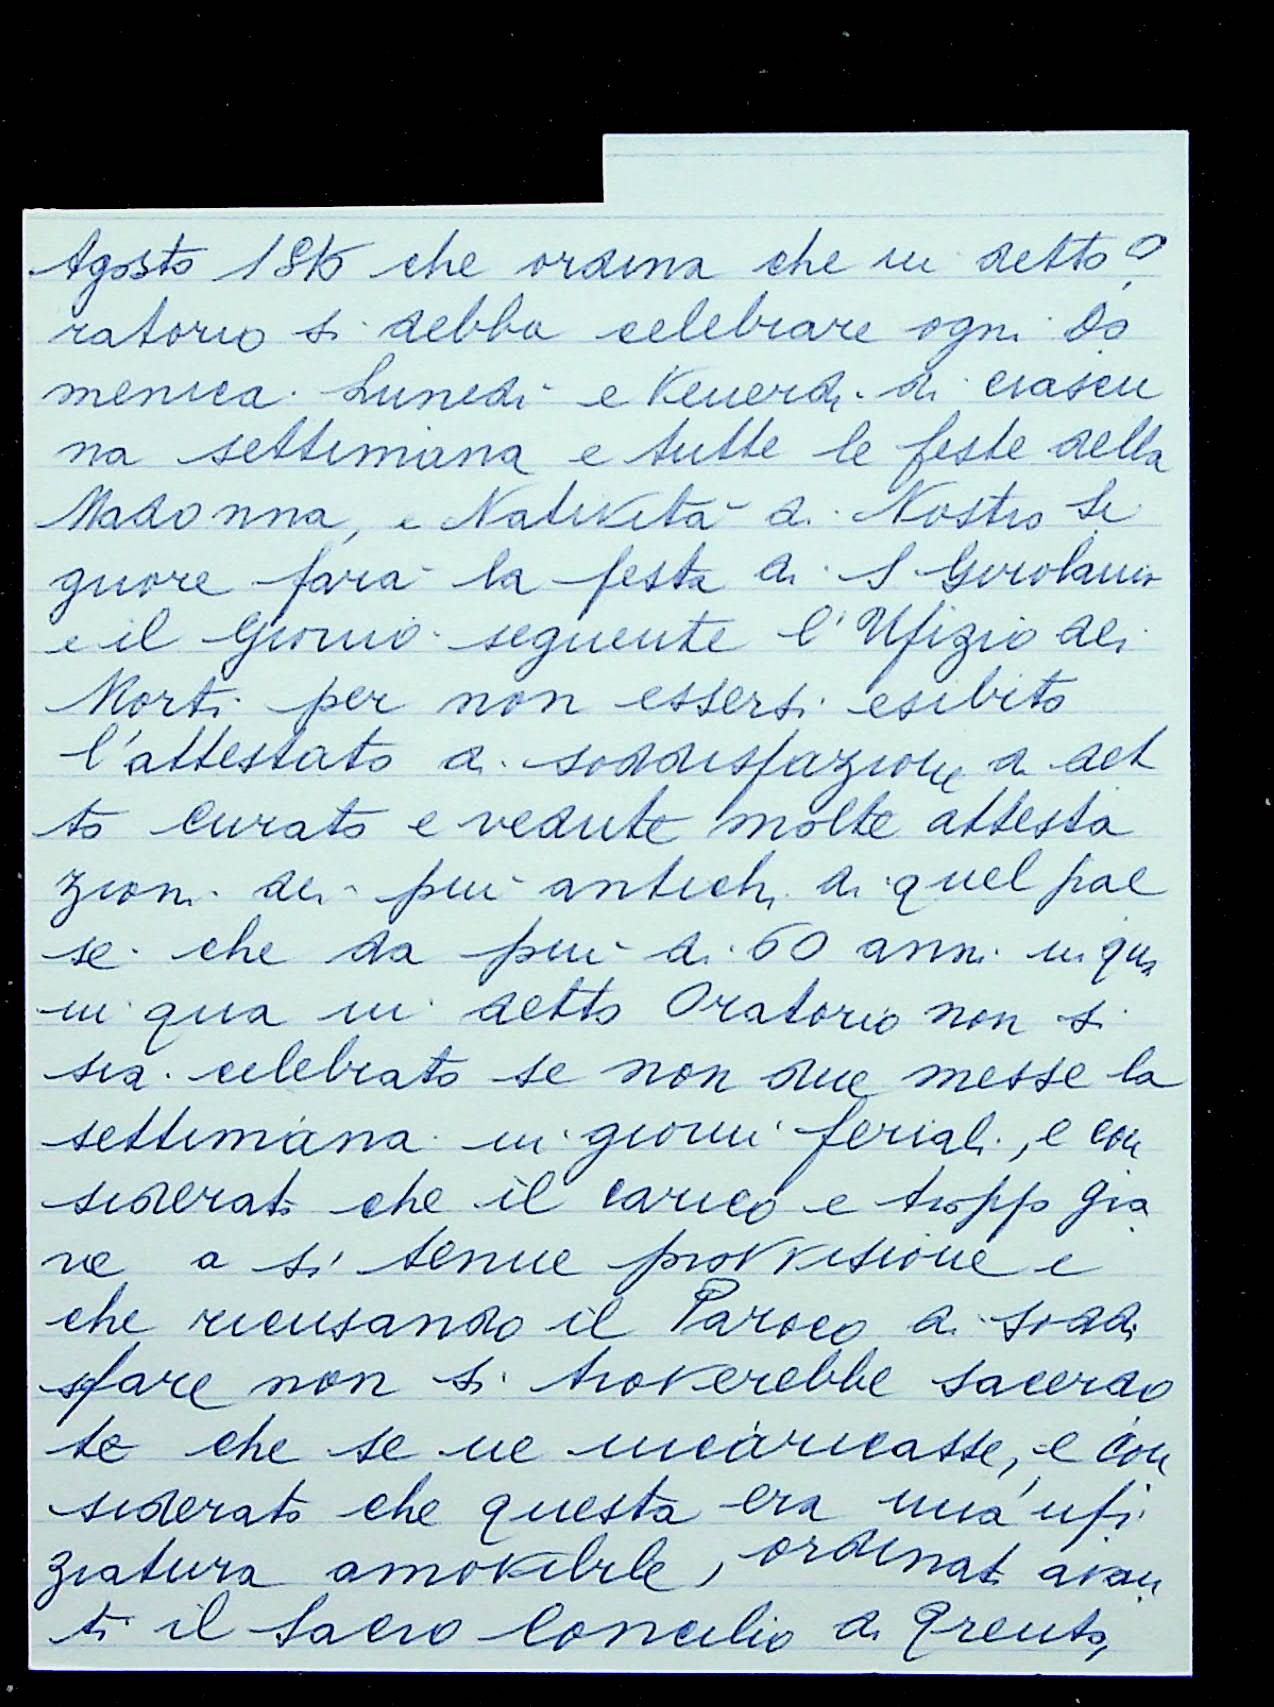 Agosto 1815 che ordina che in detto O
ratorio si debba celebrare ogni Do
menica. Lunedi e Venerdi di ciascu
na settimana e tutte le feste della
Madonna, e Natività di Nostro Si
gnore farà la festa di S Girolamo
e il Giorno seguente l'Ufizio dei
Morti per non essersi esibito
l'attestato di soddisfazione a det
to Curato e vedute molte attesta
zioni dei più antichi di quel pae
se che da più di 60 anni in qua
in qua in detto Oratorio non si
sia celebrato se non due messe la
settimana in giorni feriali, e con
siderato che il carico e troppo gra
ve a sì tenue provvisione e
che ricusando il Paroco di soddi
sfare non si troverebbe sacerdo
te che se ne incaricasse, e con
siderato che questa era una'ufi
ziatura amovibile, ordinati avan
ti il Sacro Concilio di Trento,